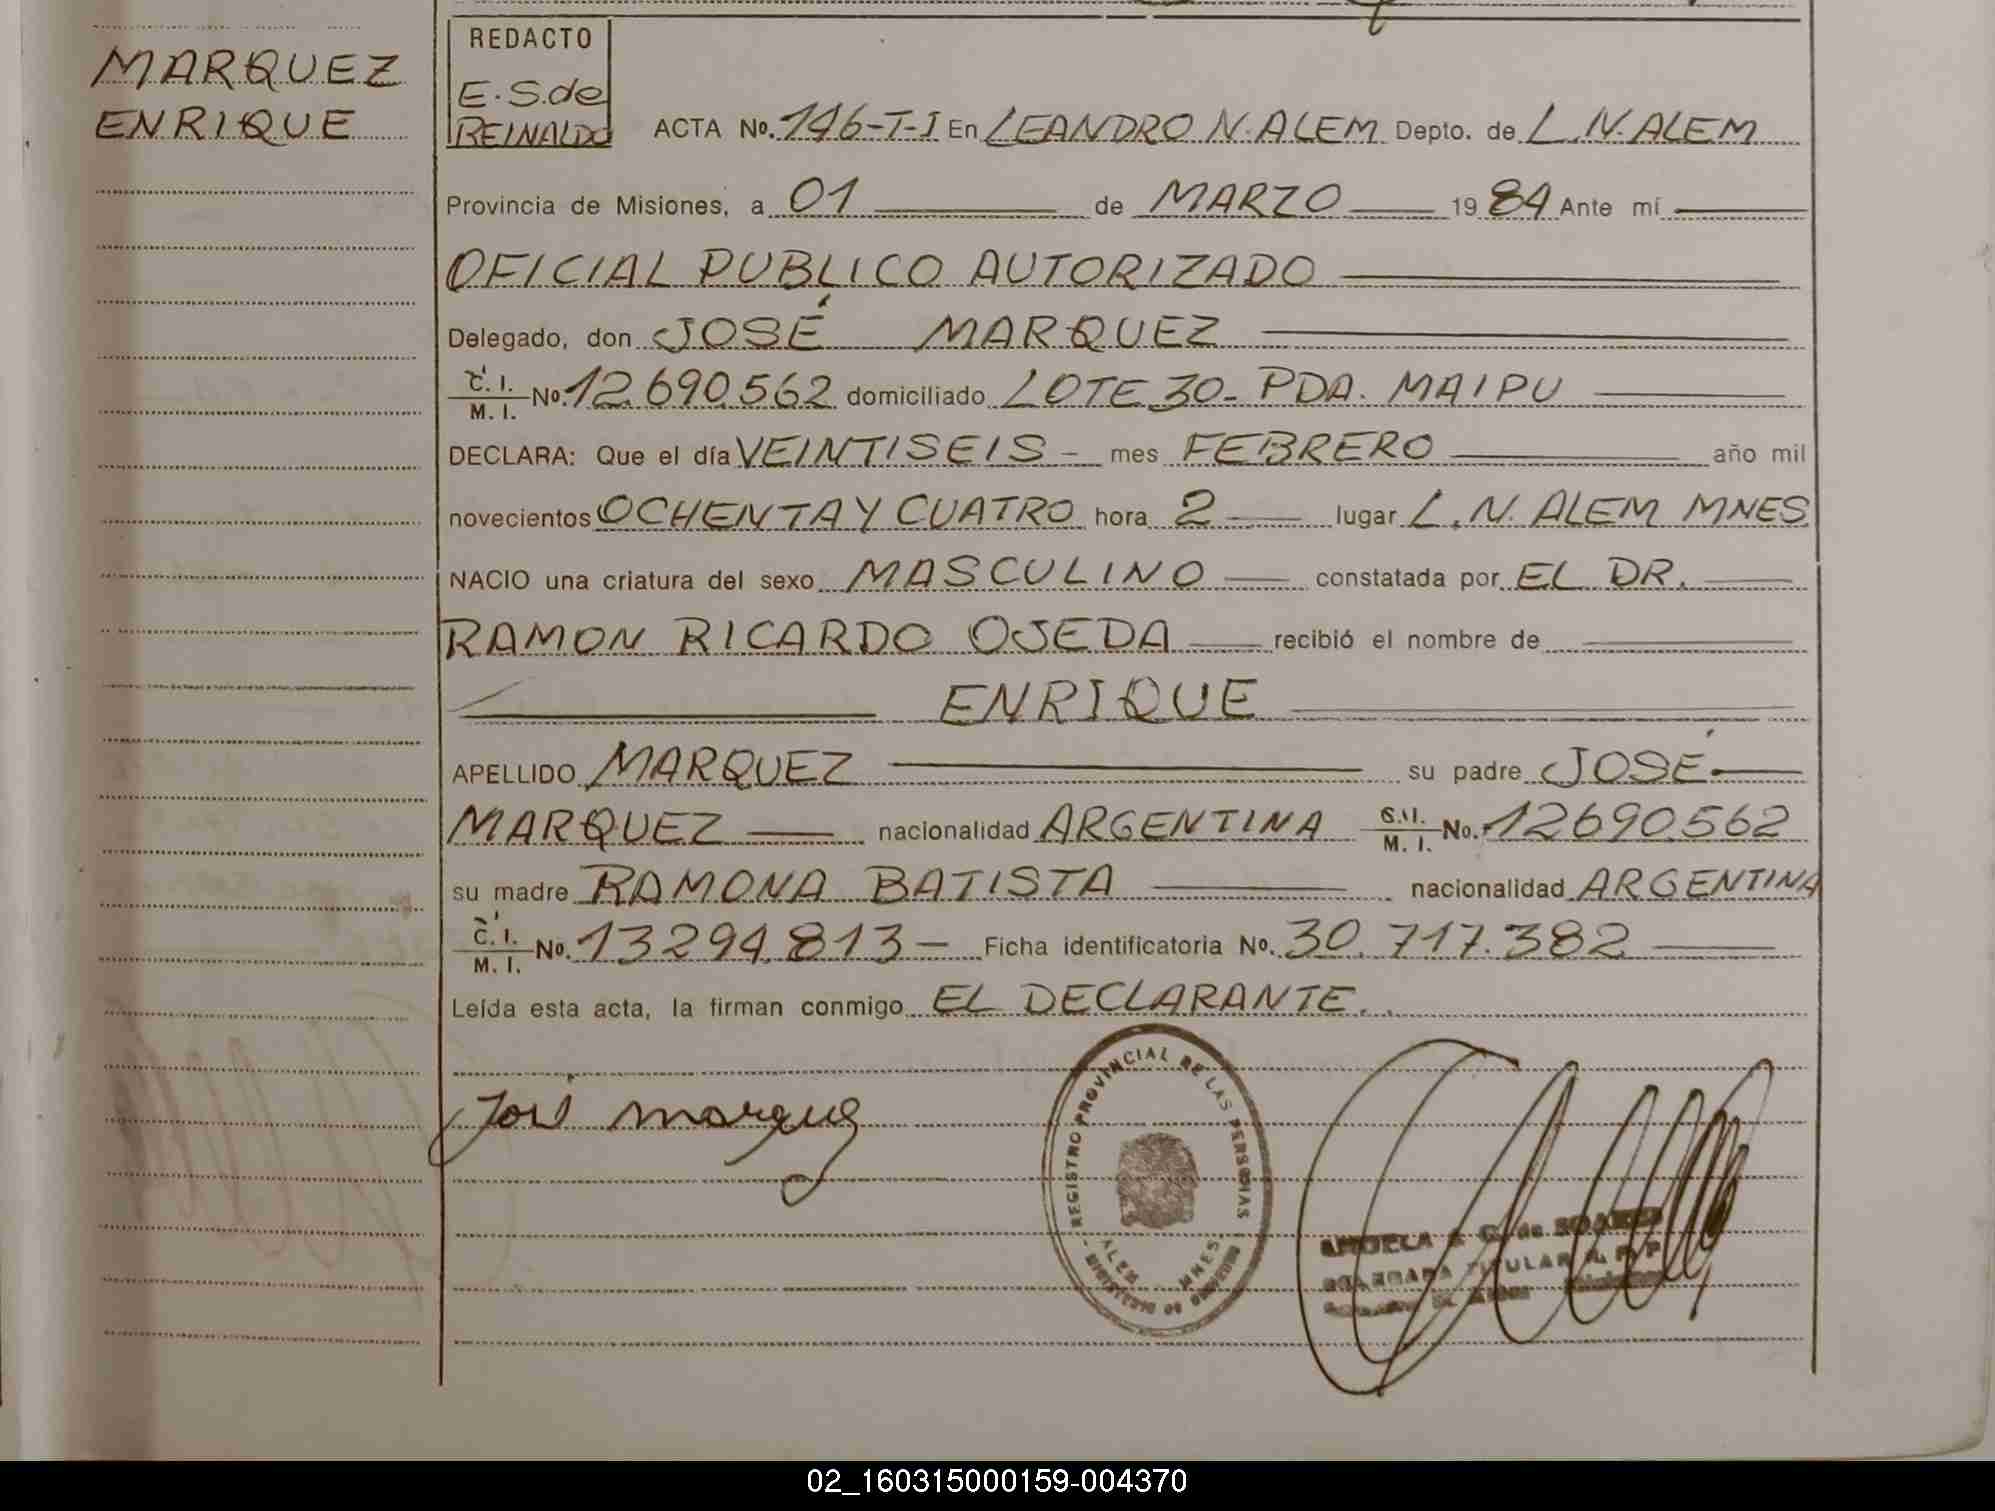 MARQUEZ
ENRIQUE
REDACTO
E.S.de
REINALDO
ACTA No. 146-T-I En LEANDRO N. ALEM Depto. de L.N. ALEM
Provincia de Misiones, a 01 de MARZO 1984 Ante mí
OFICIAL PUBLICO AUTORIZADO
Delegado, don JOSÉ MARQUEZ
C.I. M.I. No. 12.690.562 domiciliado LOTE 30- PDA. MAIPU
DECLARA: Que el día VEINTISEIS - mes FEBRERO año mil
novecientos OCHENTA Y CUATRO hora 2 lugar L.N. ALEM MNES
NACIO una criatura del sexo MASCULINO constatada por EL DR.
RAMON RICARDO OJEDA recibió el nombre de
ENRIQUE
APELLIDO MARQUEZ su padre JOSÉ
MARQUEZ nacionalidad ARGENTINA C.I. M.I. No. 12690.562
su madre RAMONA BATISTA nacionalidad ARGENTINA
C.I. M.I. No. 13294.813- Ficha identificatoria No. 30.717.382
Leída esta acta, la firman conmigo EL DECLARANTE.
José Marquez
REGISTRO PROVINCIAL DE LAS PERSONAS
ALEM MNES
MINISTERIO DE GOBIERNO
G. de SOARES
TITULAR
02_160315000159-004370